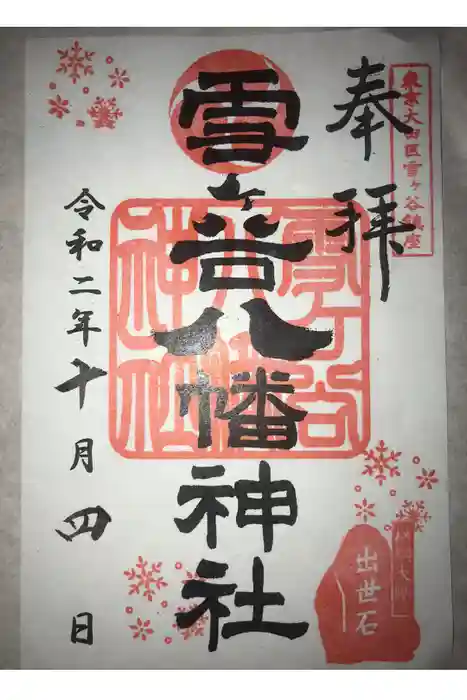 東京大田区雪ヶ谷鎮座
奉拝
雪ヶ谷八幡神社
雪ヶ谷
八幡
神社
出世石
令和二年十月四日